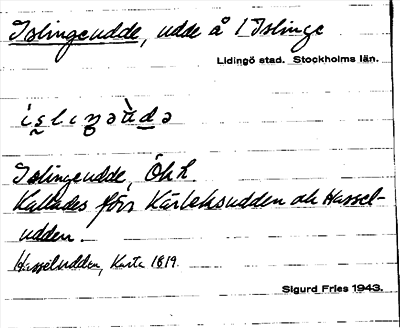 Islingeudde, udde å I Islinge
Lidingö stad. Stockholms län.
íslıŋəùdə
Islingeudde, Ökh.
Kallades förr Kärleksudden ok Hassel-
udden.
Hasseludden, Karta 1819.
Sigurd Fries 1943.